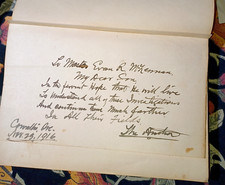 To Master Evan R. McKennon
My Dear Son,
In the fervent Hope that He will live
To Understand all of these Investigations
And continue them Much farther
In All their Fields,
The Author
Corvallis, Ore.
Nov. 29, 1916.